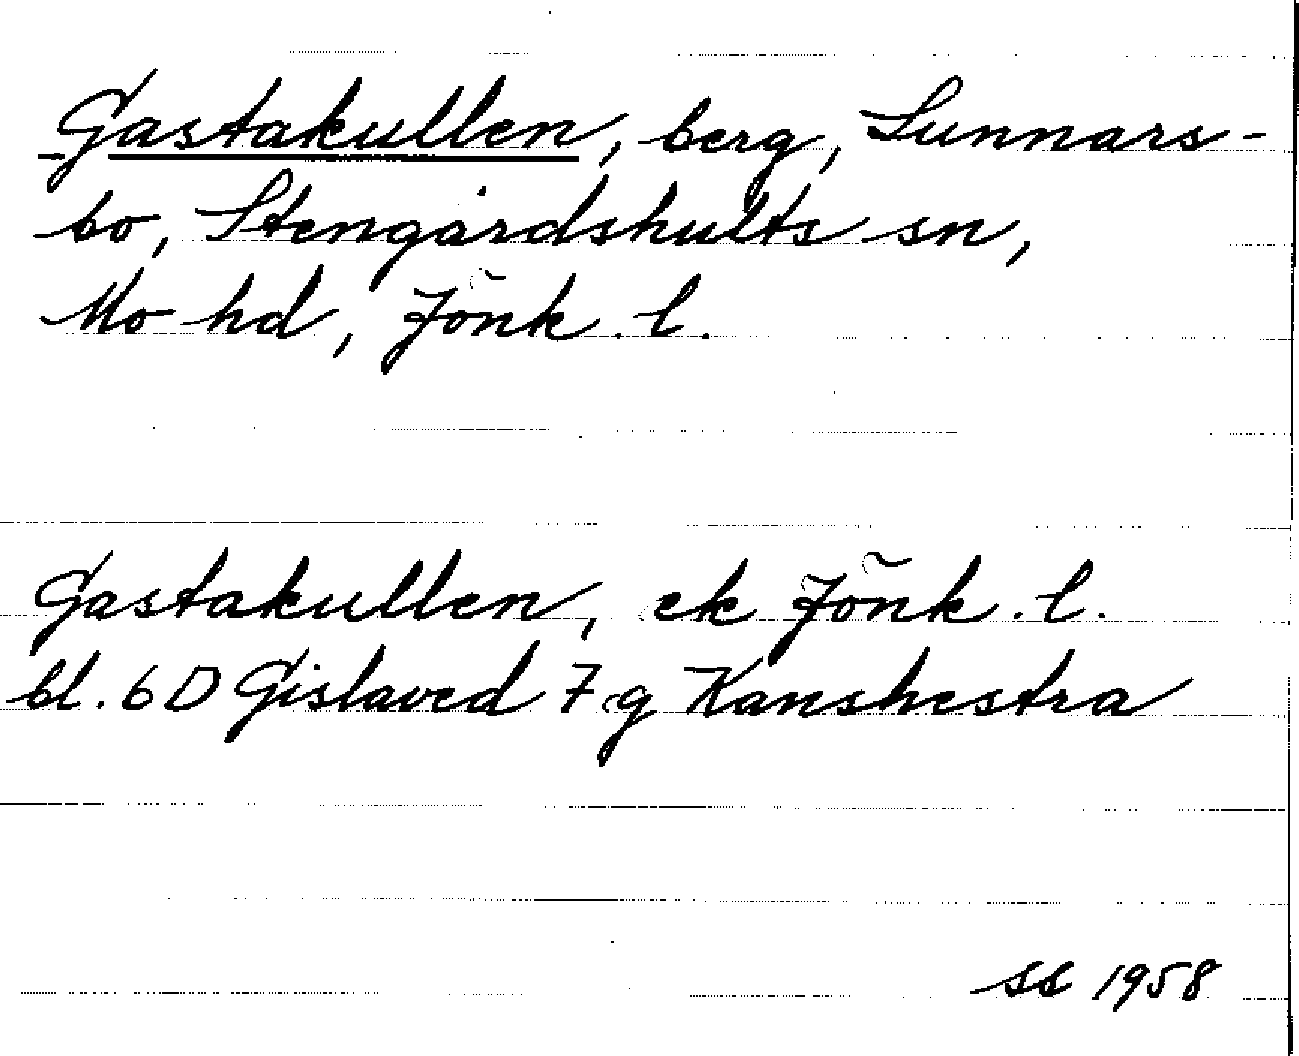 Gastakullen, berg, Sunnars-
bo, Stengårdshults sn,
Mo hd, Jönk. l.
Gastakullen, ek Jönk. l.
bl. 6 D Gislaved 7 g Kanshestra
SS 1958